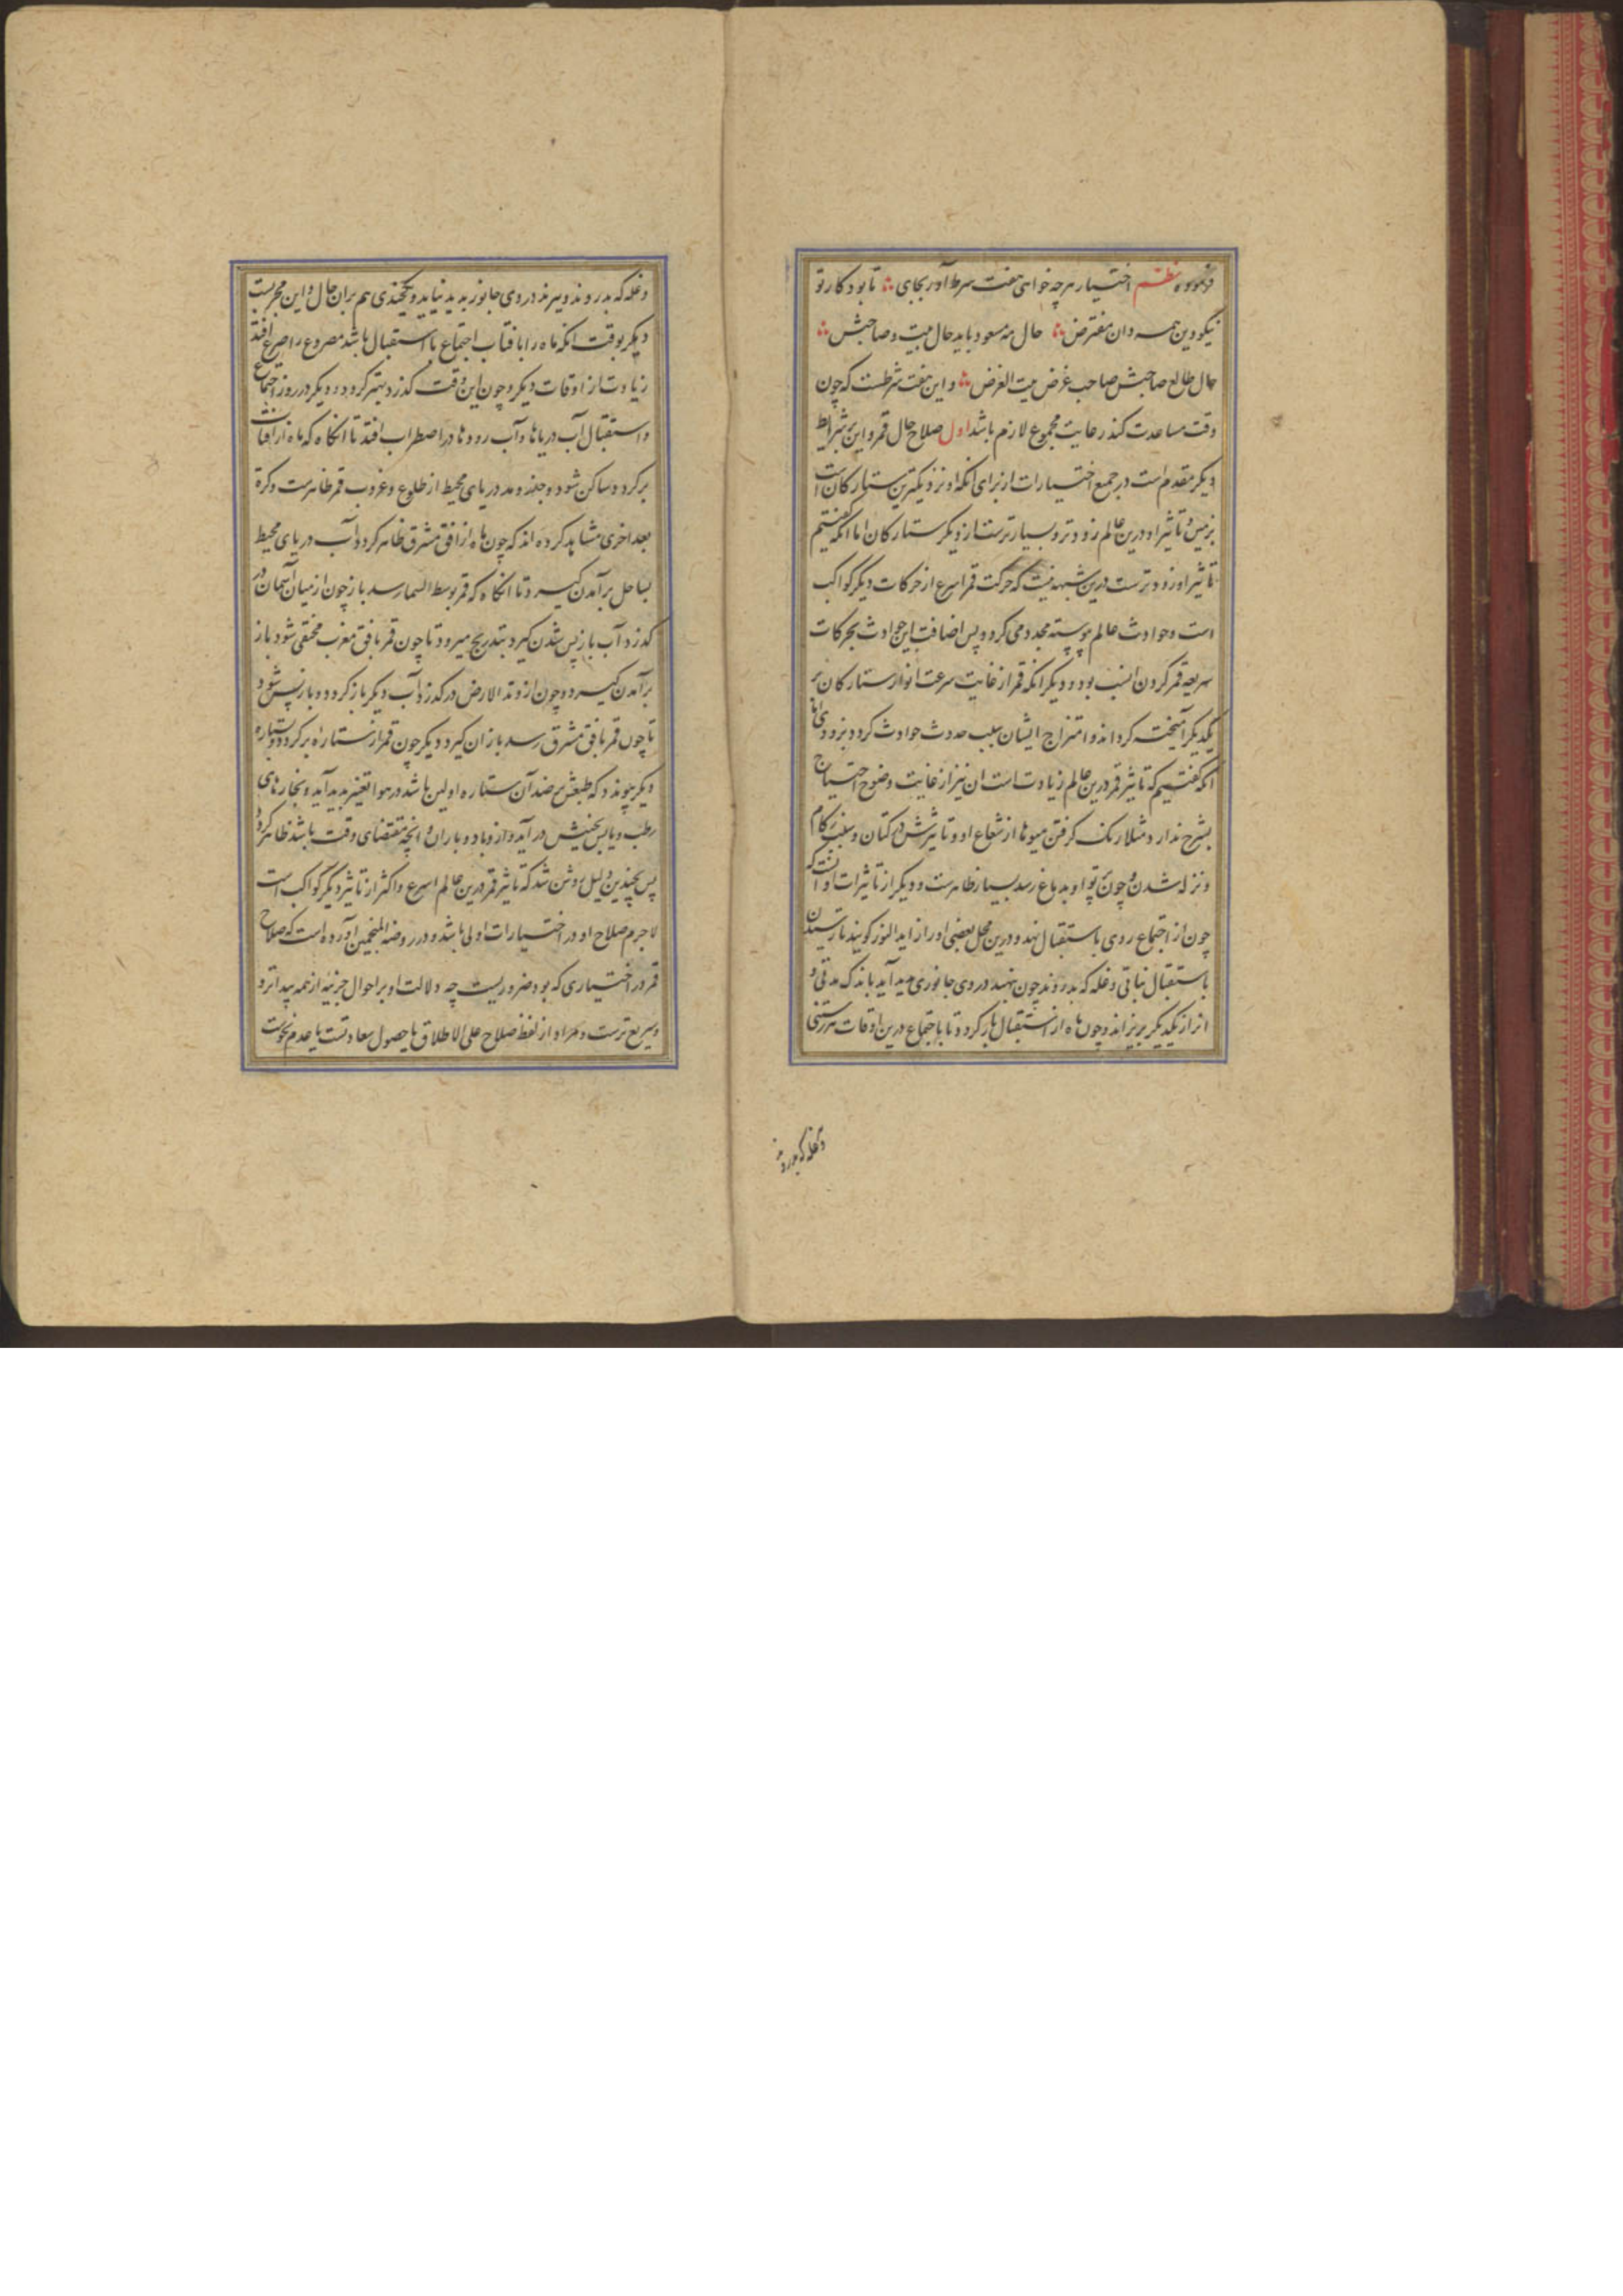 فرموده نظم اختیار هرچه خواهی هفت شرط آور بجای تا بود کار تو
نیکو وین همه دان مفترض حال مه مسعود باید حال بیت و صاحبش
حال طالع صاحبش صاحب غرض بیت الغرض و این هفت شرطست که چون
وقت مساعدت کند رعایت مجموع لازم باشد اول صلاح حال قمر و این بر شرایط
دیکر مقدم است در جمیع اختیارات از برای آنکه او نزدیکترین ستارکان است
بزمین و تاثیر او درین عالم زودتر و بسیارترست از دیکر ستارکان اما آنکه کفتیم
تاثیر او زودترست درین شبهه نیست که حرکت قمر اسرع از حرکات دیکر کواکب
است و حوادث عالم پیوسته مجدد می کردد پس اضافت این حوادث بحرکات
سریعه قمر کردن انسب بود و دیکر آنکه قمر از غایت سرعت انوار ستارکان بر
یکدیکر آمیخته کرداند و امتزاج ایشان سبب حدوث حوادث کردد بزودی اما
آنکه کفتیم که تاثیر قمر درین عالم زیادت است آن نیز از غایت وضوح احتیاج
بشرح ندارد مثلا رنک کرفتن میوها از شعاع او و تاثیرش در کتان و سبب زکام
و نزله شدن چون پرتو او بدماغ رسد بسیار ظاهرست و دیکر از تاثیرات او آنست که
چون از اجتماع روی باستقبال نهد و درین محل بعضی او را زاید النور کویند تا رسیدن
باستقبال نباتی و غله که بدروند چون بنهند در وی جانوری پدید آید باندک مدتی و
انرا از یکدیکر بریزاند و چون ماه از استقبال باز کردد تا باجتماع درین اوقات هر رستنی
و غله که بدروند
و غله که بدروند و ببرند در وی جانور پدید نیاید و یکچندی هم بران حال و این مجربست
دیکر بوقت آنکه ماه را با افتاب اجتماع یا استقبال باشد مصروع را صرع افتد
زیادت از اوقات دیکر و چون این وقت کذرد بهتر کردد و دیکر در روز اجتماع
و استقبال آب دریاها و آب رودها در اضطراب افتد تا انکاه که ماه از افتاب
برکردد ساکن شود و جزر و مد دریای محیط از طلوع و غروب قمر ظاهرست و کرة
بعد اخری مشاهد کرده اند که چون ماه از افق مشرق ظاهر کردد آب دریای محیط
بساحل برآمدن کیرد تا انکاه که قمر بوسط السما رسد باز چون از میان آسمان در
کذرد آب باز پس شدن کیرد بتدریج میرود تا چون قمر بافق مغرب مختفی شود باز
برآمدن کیرد و چون از وتد الارض در کذرد آب دیکر باز کردد و باز پس شود
تا چون قمر بافق مشرق رسد باز ان کیرد دیکر چون قمر از ستاره برکردد و بستاره
دیکر پیوندد که طبعش ضد آن ستاره اولین باشد در هوا تغیر پدید آید و بخارهای
رطب و یابس بجنبش در آید و از و باد و باران و انچه مقتضای وقت باشد ظاهر کردد
پس بچندین دلیل روشن شد که تاثیر قمر درین عالم اسرع و اکثر از تاثیر دیکر کواکب است
لاجرم صلاح او در اختیارات اولی باشد و در روضة المنجمین آورده است که صلاح
قمر در اختیاری که بود ضروریست چه دلالت او بر احوال جزئیه از همه پیداتر و
سریع ترست و مراد از لفظ صلاح علی الاطلاق یا حصول سعادتست یا عدم نحوست